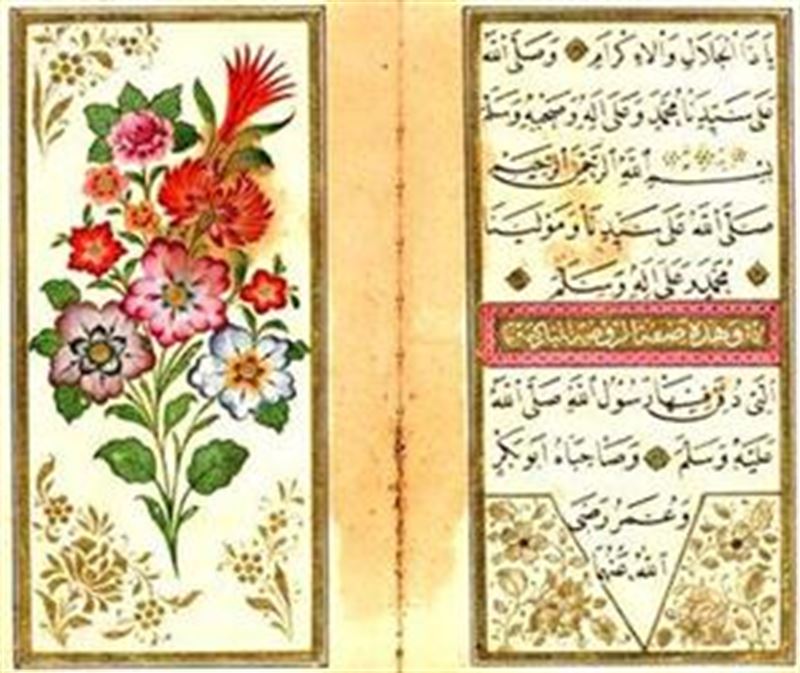 يَا ذَا الْجَلَالِ وَالْاِكْرَامِ وَصَلَّى اللهُ
عَلَى سَيِّدِنَا مُحَمَّدٍ وَعَلَى اٰلِهِ وَصَحْبِهِ وَسَلَّمَ
بِسْمِ اللهِ الرَّحْمٰنِ الرَّحِيْمِ
صَلَّى اللهُ عَلَى سَيِّدِنَا وَمَوْلَيْنَا
مُحَمَّدٍ وَعَلَى اٰلِهِ وَسَلَّمَ
وهذه صفة الروضة المباركة
الَّتِي دُفِنَ فِيهَا رَسُولُ اللهِ صَلَّى اللهُ
عَلَيْهِ وَسَلَّمَ وَصَاحِبَاهُ اَبُوبَكْرٍ
وَعُمَرُ رَضِىَ
اللهُ عَنْهُمَا